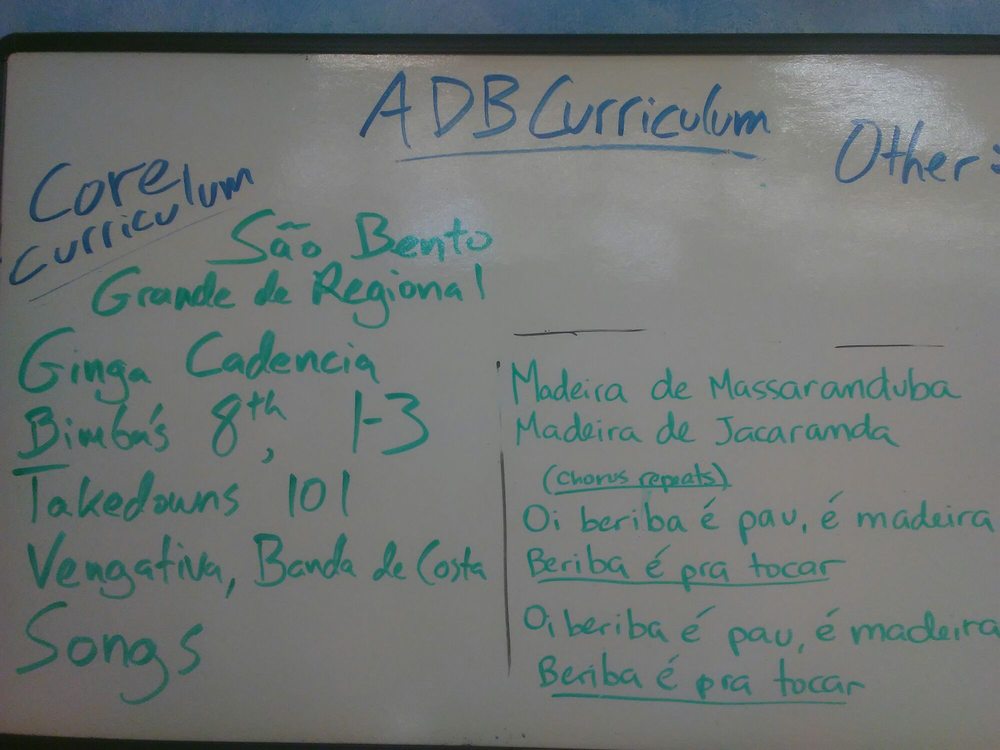 ADB Curriculum
Other:
Core
curriculum
São Bento
Grande de Regional
Ginga Cadencia
Bimba's 8th, 1-3
Takedowns 101
Vengativa, Banda de Costa
Songs
Madeira de Massaranduba
Madeira de Jacaranda
(Chorus repeats)
Oi beriba é pau, é madeira
Beriba é pra tocar
Oi beriba é pau, é madeira
Beriba é pra tocar